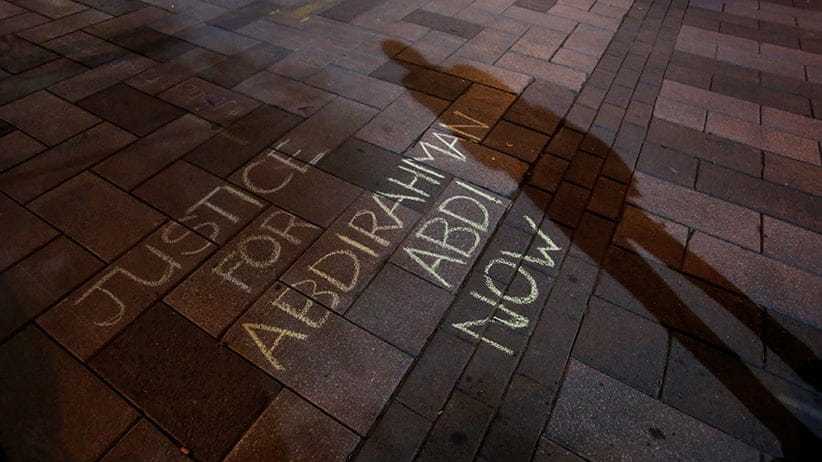 JUSTICE
FOR
ABDIRAHMAN
ABDI
NOW